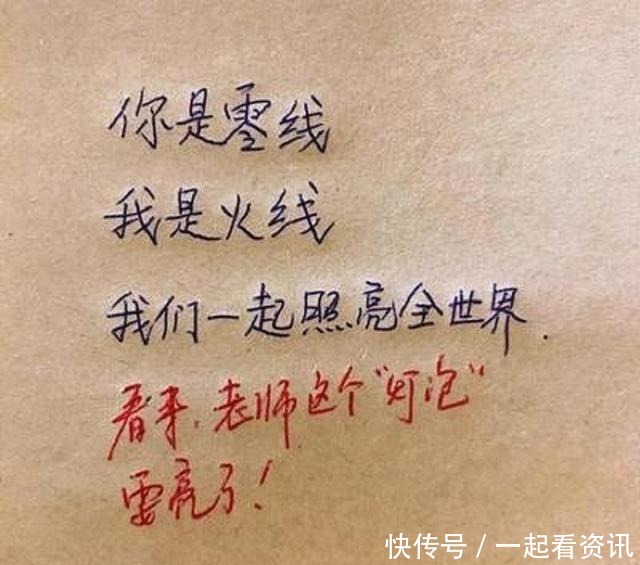 你是零线
我是火线
我们一起照亮全世界.
看来，老师这个“灯泡”
要亮了！
快传号 / 一起看资讯